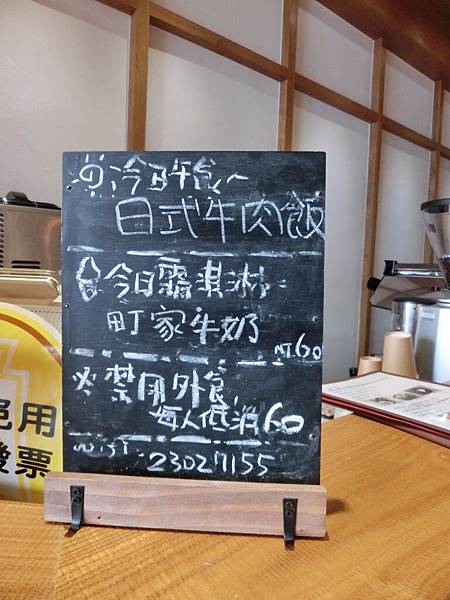 今日午食~
日式牛肉飯
今日霜淇淋
町家牛奶
NT.60
※禁帶外食
每人低消60
wifi:23027155
免用
發票